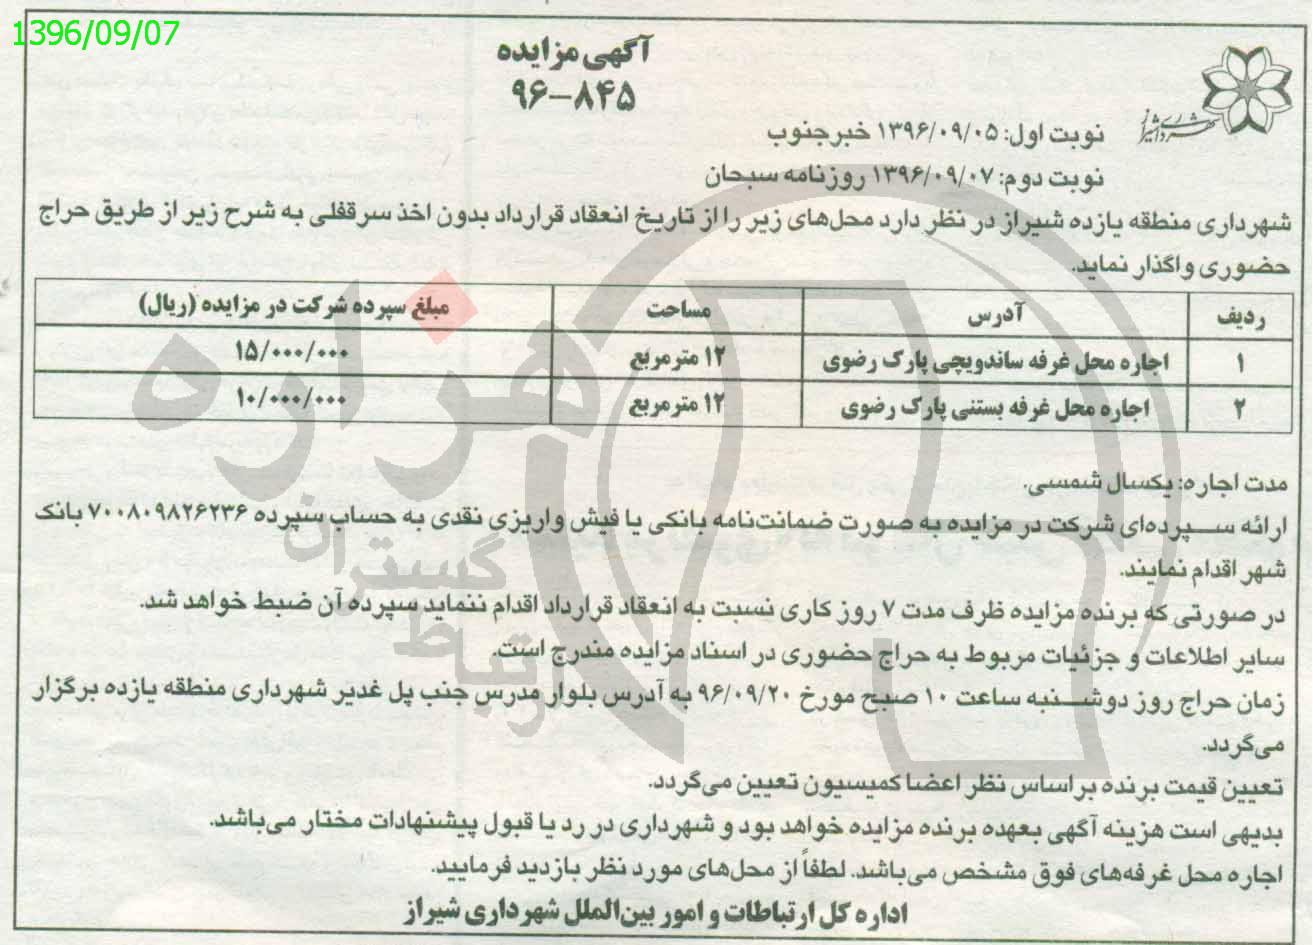 1396/09/07
آگهی مزایده
۹۶-۸۴۵
شهرداری شیراز
نوبت اول: ۱۳۹۶/۰۹/۰۵ خبرجنوب
نوبت دوم: ۱۳۹۶/۰۹/۰۷ روزنامه سبحان
شهرداری منطقه یازده شیراز در نظر دارد محل‌های زیر را از تاریخ انعقاد قرارداد بدون اخذ سرقفلی به شرح زیر از طریق حراج
حضوری واگذار نماید.
ردیف آدرس مساحت مبلغ سپرده شرکت در مزایده (ریال)
۱ اجاره محل غرفه ساندویچی پارک رضوی ۱۲ مترمربع ۱۵/۰۰۰/۰۰۰
۲ اجاره محل غرفه بستنی پارک رضوی ۱۲ مترمربع ۱۰/۰۰۰/۰۰۰
مدت اجاره: یکسال شمسی.
ارائه سپرده‌ای شرکت در مزایده به صورت ضمانت‌نامه بانکی یا فیش واریزی نقدی به حساب سپرده ۷۰۰۸۰۹۸۲۶۲۳۶ بانک
شهر اقدام نمایند.
در صورتی که برنده مزایده ظرف مدت ۷ روز کاری نسبت به انعقاد قرارداد اقدام ننماید سپرده آن ضبط خواهد شد.
سایر اطلاعات و جزئیات مربوط به حراج حضوری در اسناد مزایده مندرج است.
زمان حراج روز دوشنبه ساعت ۱۰ صبح مورخ ۹۶/۰۹/۲۰ به آدرس بلوار مدرس جنب پل غدیر شهرداری منطقه یازده برگزار
می‌گردد.
تعیین قیمت برنده براساس نظر اعضا کمیسیون تعیین می‌گردد.
بدیهی است هزینه آگهی بعهده برنده مزایده خواهد بود و شهرداری در رد یا قبول پیشنهادات مختار می‌باشد.
اجاره محل غرفه‌های فوق مشخص می‌باشد. لطفاً از محل‌های مورد نظر بازدید فرمایید.
اداره کل ارتباطات و امور بین‌الملل شهرداری شیراز
هزاره
گستران
ارتباط